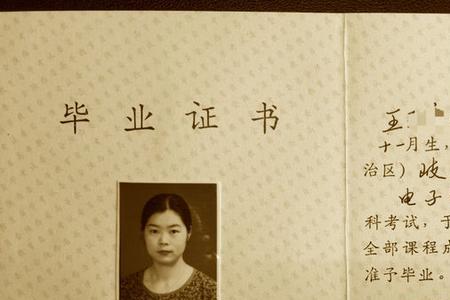 毕业证书
王
十一月生，
治区）岐
电子
科考试，于
全部课程成
准予毕业。